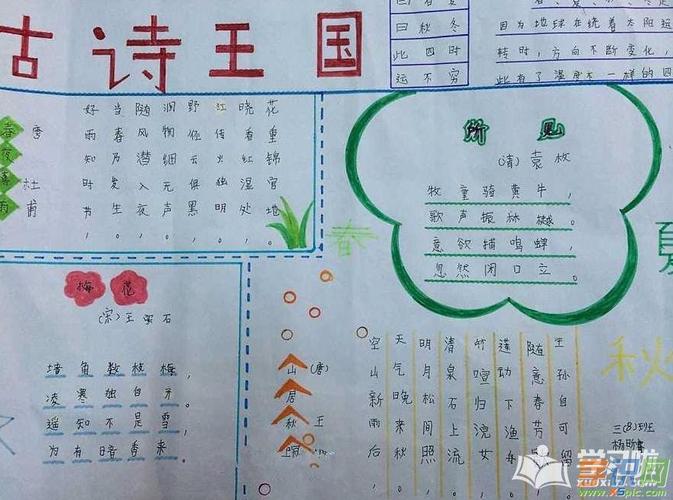 古诗王国
曰秋冬
此四时
运不穷
因为地球在绕着太阳运
转时,方向不断变化,
此有了温度不一样的四
春夜喜雨
唐 杜甫
好雨知时节,
当春乃发生。
随风潜入夜,
润物细元声。
野径云俱黑,
江船火独明。
晓看红湿处,
花重锦官地。
所见
(清)袁枚
牧童骑黄牛,
歌声振林樾。
意欲捕鸣蝉,
忽然闭口立。
春
夏
秋
梅花
(宋)王安石
墙角数枝梅,
凌寒独自开。
遥知不是雪,
为有暗香来。
山居秋暝
(唐)王
空山新雨后,
天气晚来秋。
明月松间照,
清泉石上流。
竹喧归浣女,
莲动下渔舟。
随意春芳
王孙自可留。
三(8)班
www.x5pic.com